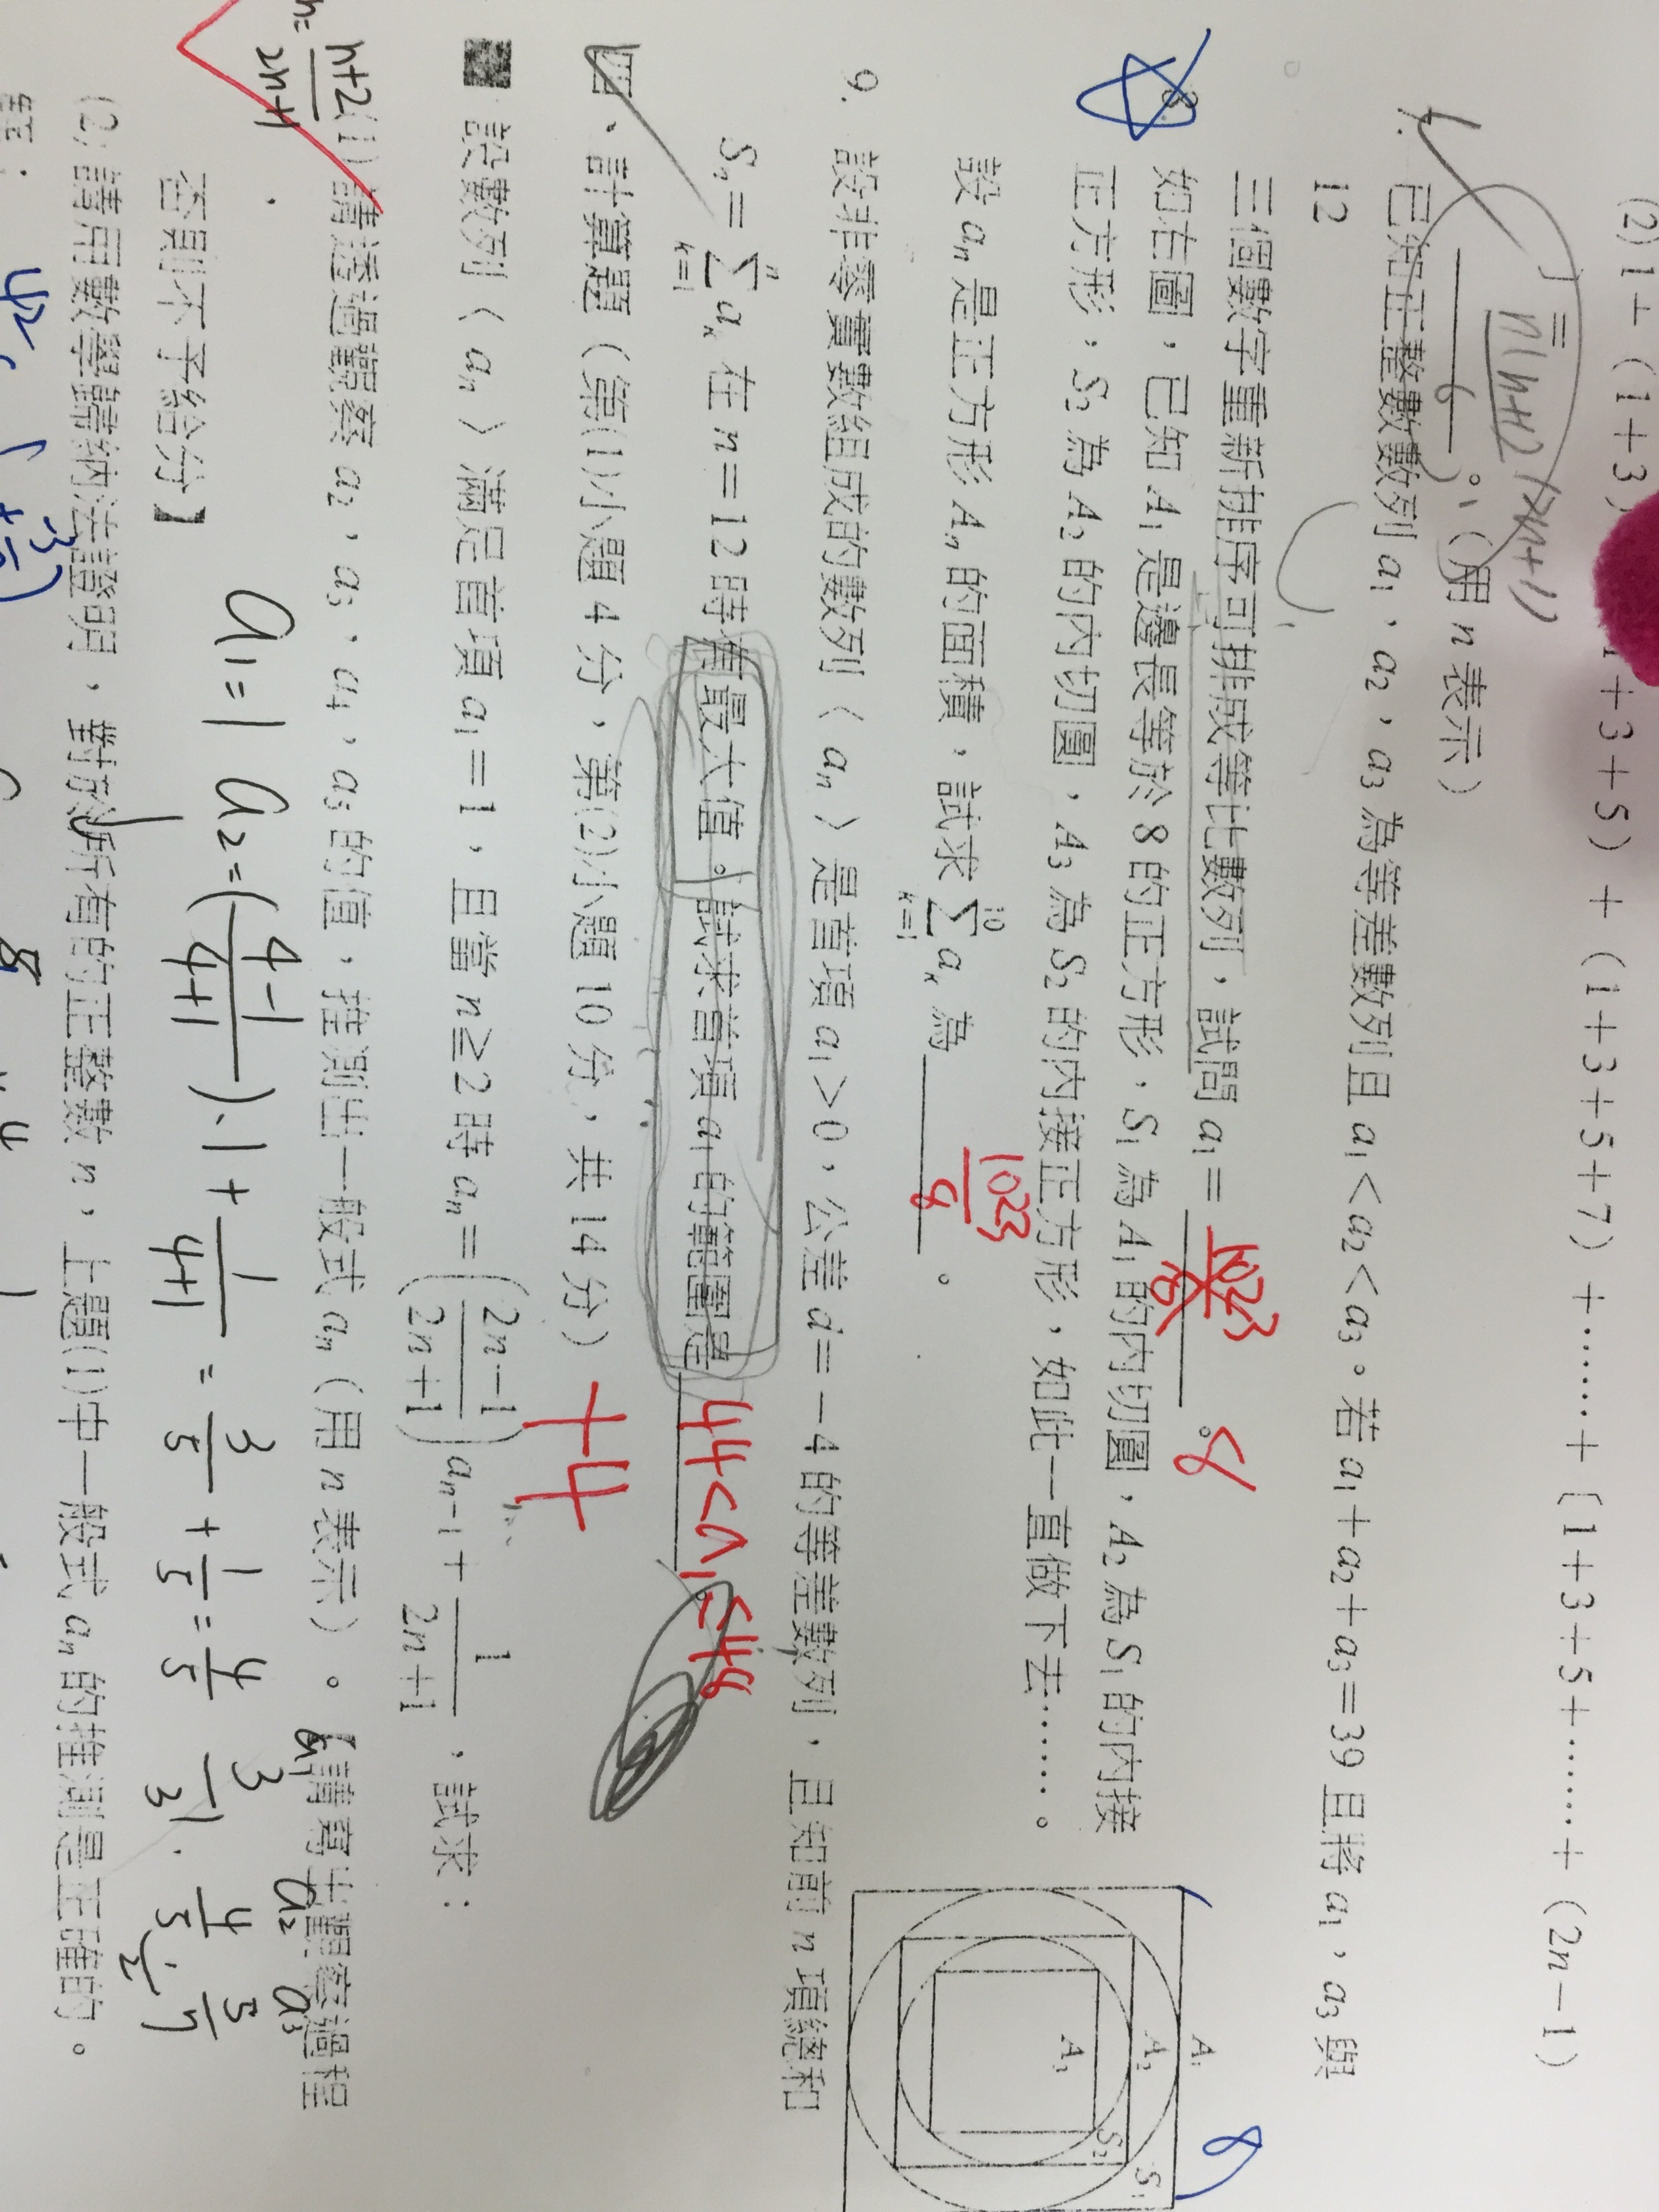 (2) 1 + (1+3) + (1+3+5) + (1+3+5+7) + ⋯⋯ + [1+3+5+⋯⋯+(2n−1)]
= n(n+1)(2n+1)
6 。(用 n 表示)
7. 已知正整數數列 a₁、a₂、a₃ 為等差數列且 a₁<a₂<a₃。若 a₁+a₂+a₃=39 且將 a₁、a₃ 與
12
三個數字重新排序可排成等比數列,試問 a₁= 。 8
8. 如右圖,已知 A₁ 是邊長等於 8 的正方形,S₁ 為 A₁ 的內切圓,A₂ 為 S₁ 的內接
正方形,S₂ 為 A₂ 的內切圓,A₃ 為 S₂ 的內接正方形,如此一直做下去⋯⋯。
設 aₙ 是正方形 Aₙ 的面積,試求 ∑ₖ₌₁¹⁰ aₖ 為 1023/8 。
A₁
A₂
A₃
S₂
S₁
8
9. 設非零實數組成的數列〈aₙ〉是首項 a₁>0,公差 d=−4 的等差數列,且知前 n 項總和
Sₙ=∑ₖ₌₁ⁿ aₖ 在 n=12 時有最大值。試求首項 a₁ 的範圍是 44<a₁≤48
四、計算題(第(1)小題 4 分,第(2)小題 10 分,共 14 分) +4
設數列〈aₙ〉滿足首項 a₁=1,且當 n≥2 時 aₙ=((2n−1)/(2n+1))aₙ₋₁+1/(2n+1),試求:
(1) 請透過觀察 a₂、a₃、a₄、a₅ 的值,推測出一般式 aₙ(用 n 表示)。【請寫出觀察過程
否則不予給分】
n+2/2n+1
a₁=1 a₂=(4−1/4+1)·1+1/4+1 = 3/5+1/5=4/5
a₁ a₂ a₃
3/3 4/5 5/7
(2) 請用數學歸納法證明,對於所有的正整數 n,上題(1)中一般式 aₙ 的推測是正確的。